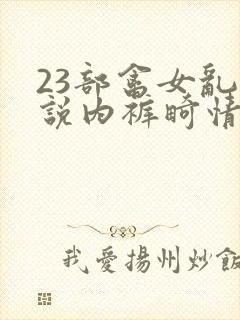 23部畜女亂
說内裤畸情
我愛揚州炒飯